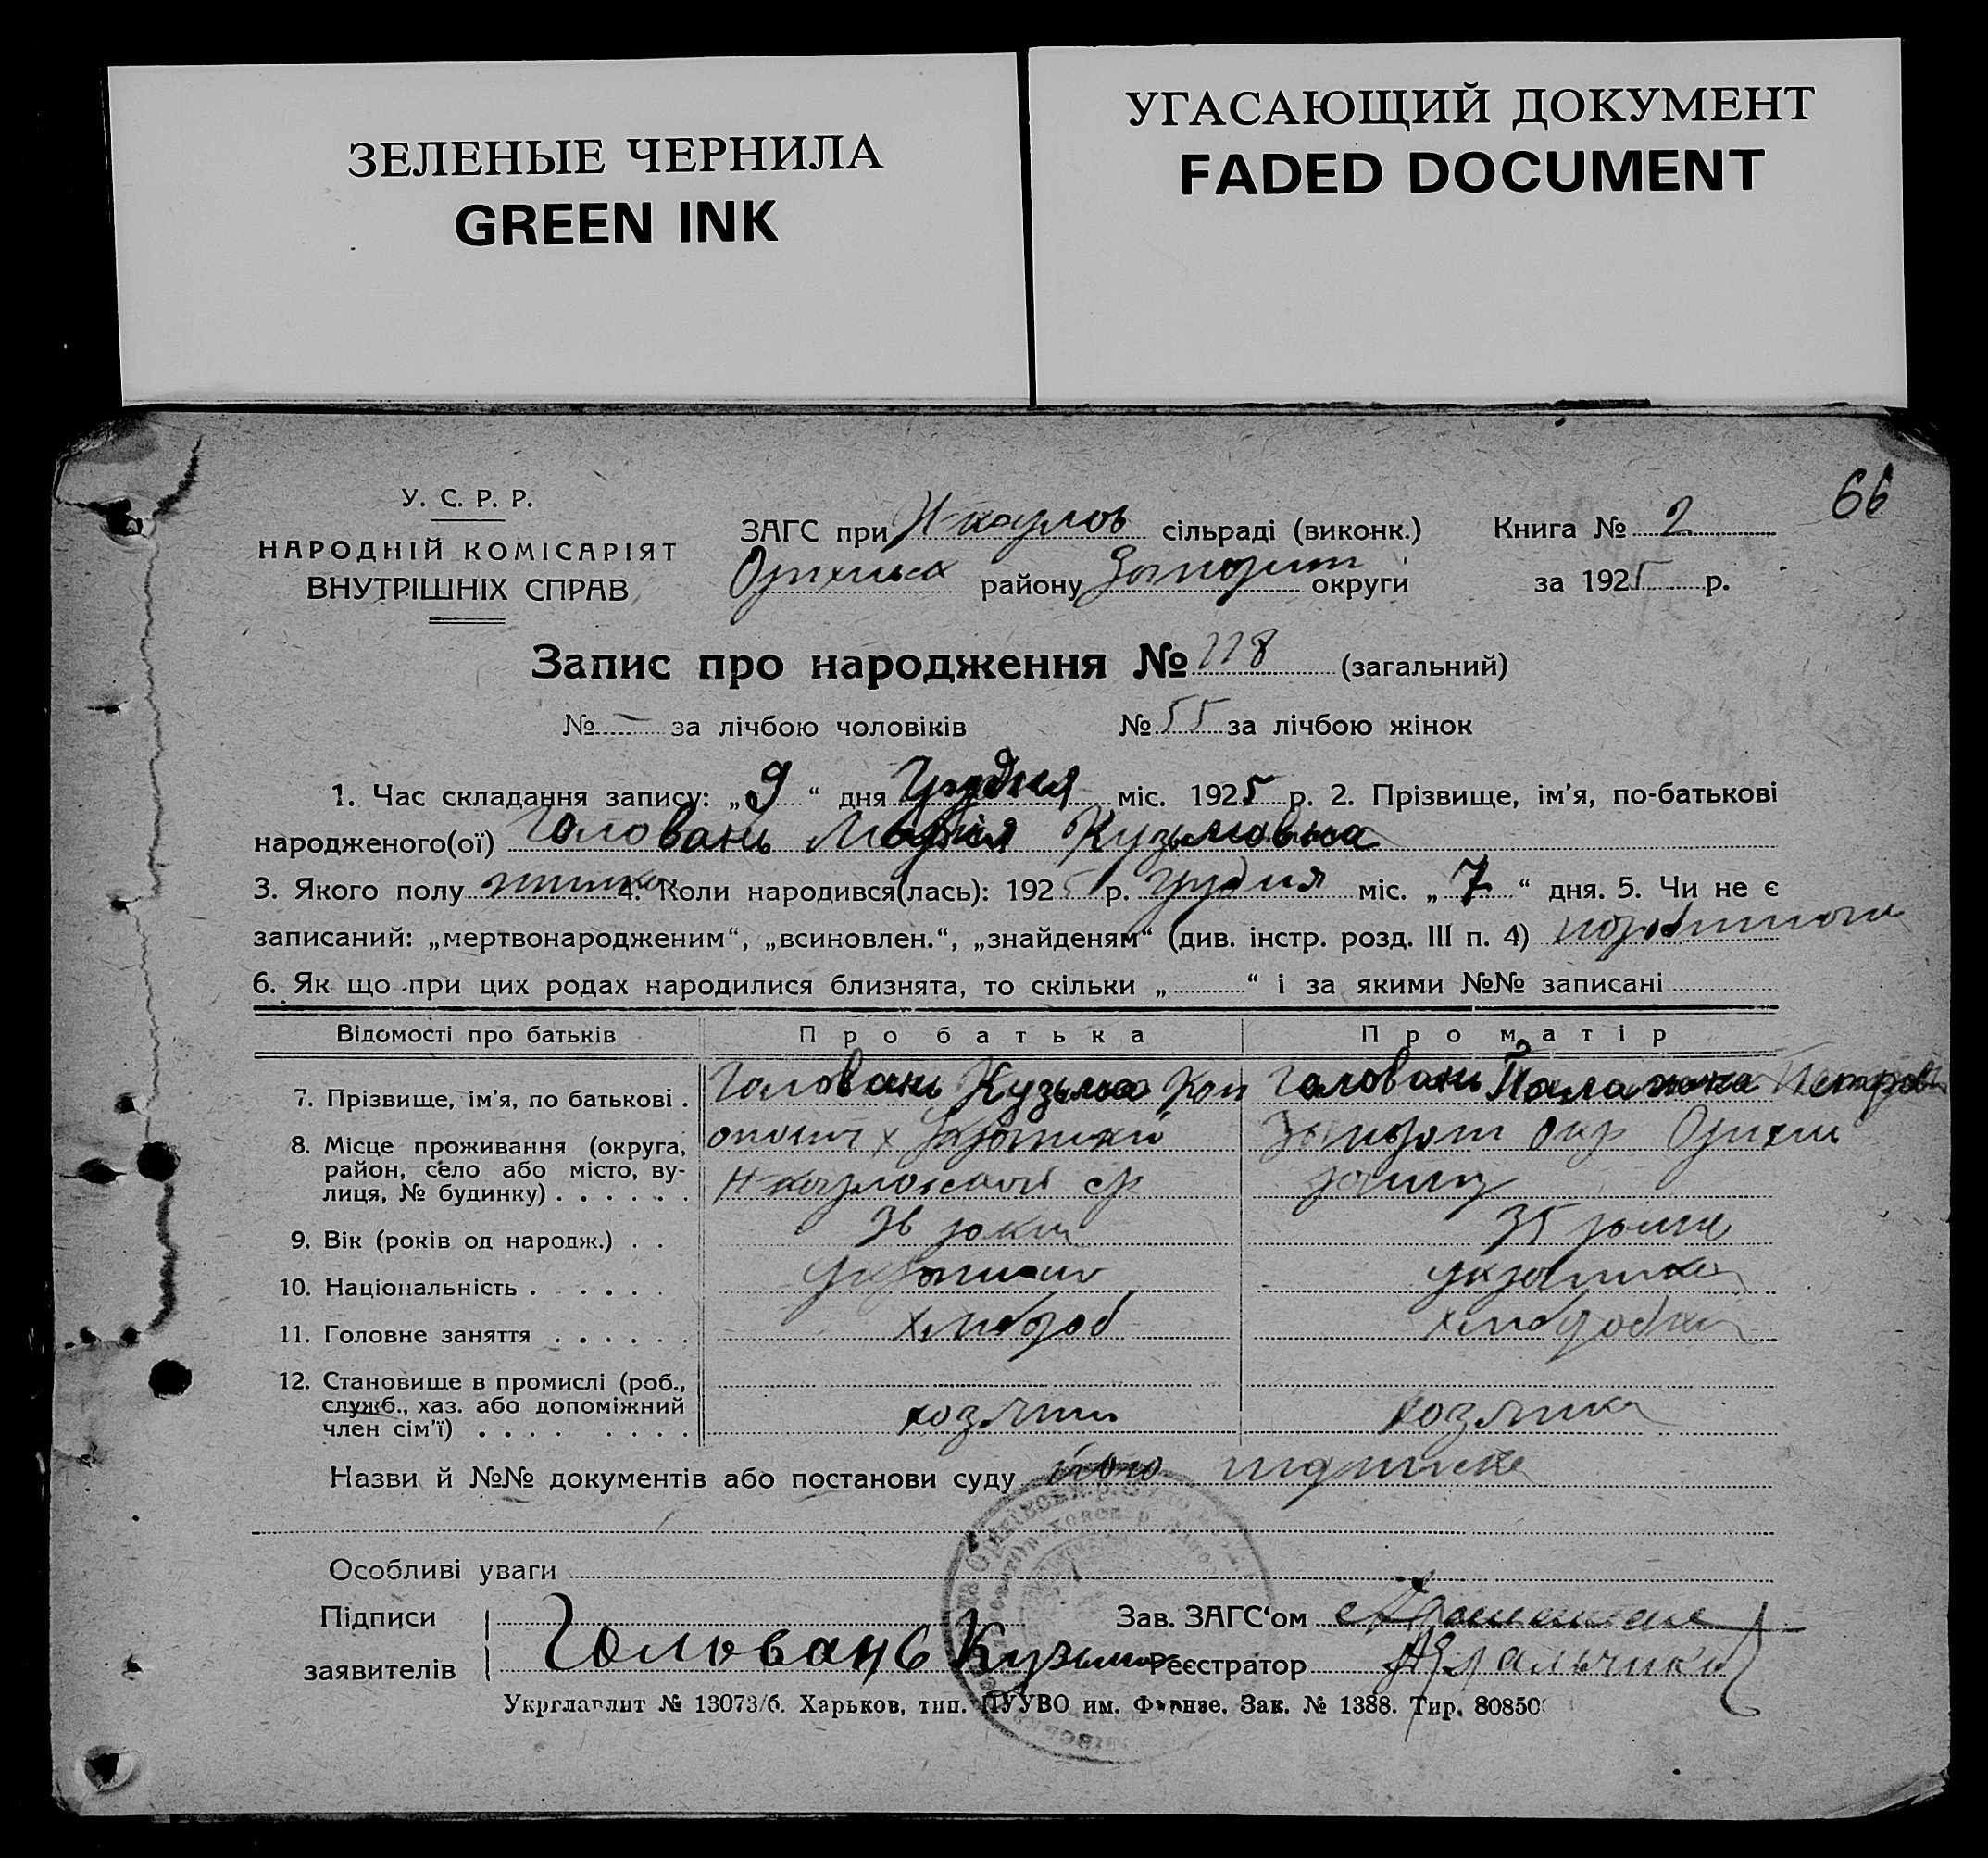 ЗЕЛЕНЫЕ ЧЕРНИЛА
GREEN INK
УГАСАЮЩИЙ ДОКУМЕНТ
FADED DOCUMENT
66
У. С. Р. Р.
НАРОДНІЙ КОМІСАРІЯТ
ВНУТРІШНІХ СПРАВ
ЗАГС при Н-каулов сільраді (виконк.) Книга № 2
району округи за 1925 р.
Запис про народження № 118 (загальний)
№ – за лічбою чоловіків № 55 за лічбою жінок
1. Час складання запису: „9“ дня Грудня міс. 1925 р. 2. Прізвище, ім'я, по-батькові
народженого(ої) Головань Марія Кузьмовна
3. Якого полу жінка 4. Коли народився(лась): 1925 р. грудня міс. „7“ дня. 5. Чи не є
записаний: „мертвонародженим“, „всиновлен.“, „знайденям“ (див. інстр. розд. III п. 4)
6. Як що при цих родах народилися близнята, то скільки „ “ і за якими №№ записані
Відомості про батьків Про батька Про матір
7. Прізвище, ім'я, по батькові . Головань Кузьма Головань Палажка Петров
8. Місце проживання (округа,
район, село або місто, ву-
лиця, № будинку) . . . . . .
9. Вік (років од народж.) . . 36 роки 35 роки
10. Національність . . . . . українець українка
11. Головне заняття . . . . . . хлібороб хліборобка
12. Становище в промислі (роб.,
служб., хаз. або допоміжний
член сім'ї) . . . . . . . . хозяїн хозяйка
Назви й №№ документів або постанови суду його підписка
Особливі уваги
Підписи Зав. ЗАГС'ом
заявителів Головань Кузьма Реєстратор
Укрглавлит № 13073/б. Харьков, тип. ПУУВО им. Фрунзе. Зак. № 1388. Тир. 80850